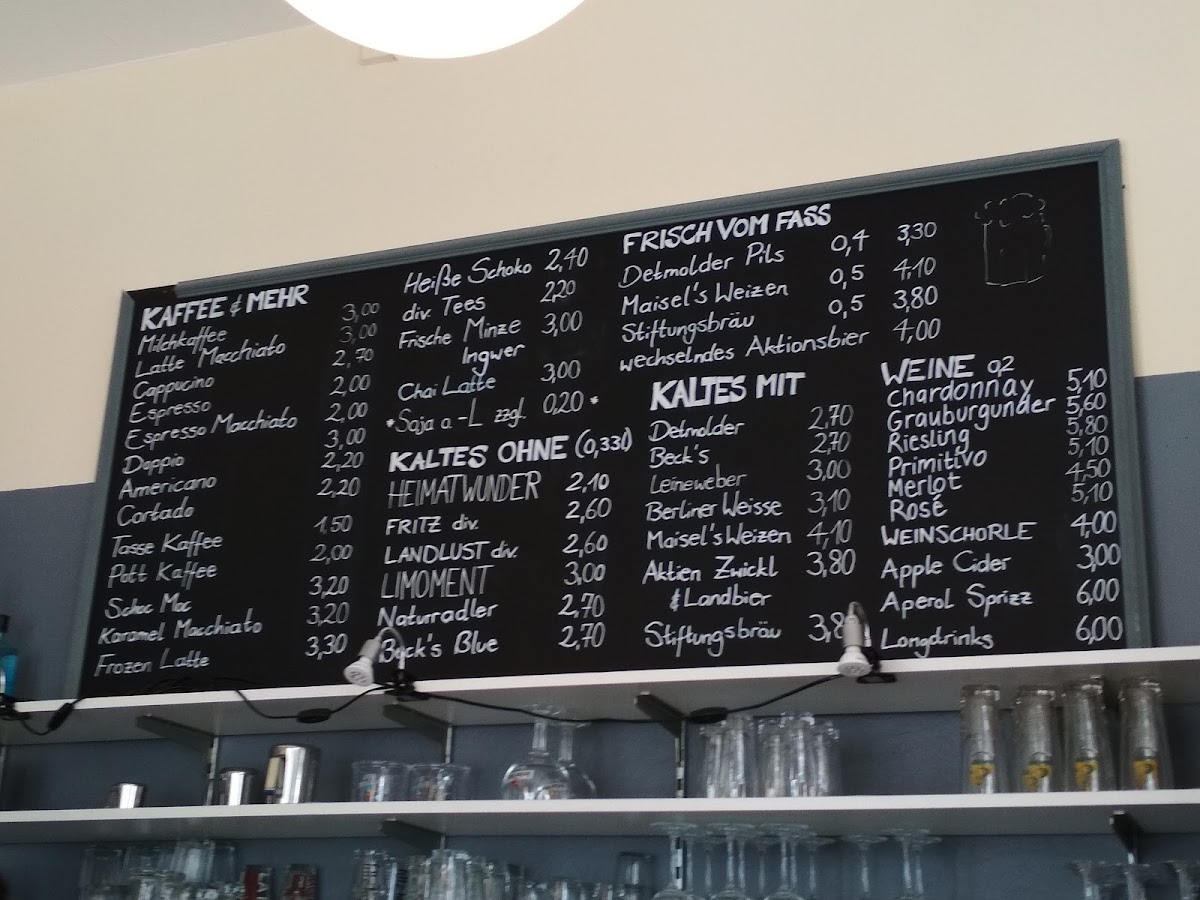 KAFFEE & MEHR
Milchkaffee 3,00
Latte Macchiato 3,00
Cappucino 2,70
Espresso 2,00
Espresso Macchiato 2,00
Doppio 3,00
Americano 2,20
Cortado 2,20
Tasse Kaffee 1,50
Pott Kaffee 2,00
Schoc Mac 3,20
Karamel Macchiato 3,20
Frozen Latte 3,30
Heiße Schoko 2,40
div. Tees 2,20
Frische Minze 3,00
Ingwer
Chai Latte 3,00
*Soja o. -L zzgl. 0,20 *
KALTES OHNE (0,33l)
HEIMATWUNDER 2,10
FRITZ div. 2,60
LANDLUST div. 2,60
LIMOMENT 3,00
Naturradler 2,70
Beck's Blue 2,70
FRISCH VOM FASS
Detmolder Pils 0,4 3,30
Maisel's Weizen 0,5 4,10
Stiftungsbräu 0,5 3,80
wechselndes Aktionsbier 4,00
KALTES MIT
Detmolder 2,70
Beck's 2,70
Leineweber 3,00
Berliner Weisse 3,10
Maisel's Weizen 4,10
Aktien Zwickl 3,80
& Landbier
Stiftungsbräu 3,8
WEINE 0,2
Chardonnay 5,10
Grauburgunder 5,60
Riesling 5,80
Primitivo 5,10
Merlot 4,50
Rosé 5,10
WEINSCHORLE 4,00
Apple Cider 3,00
Aperol Sprizz 6,00
Longdrinks 6,00